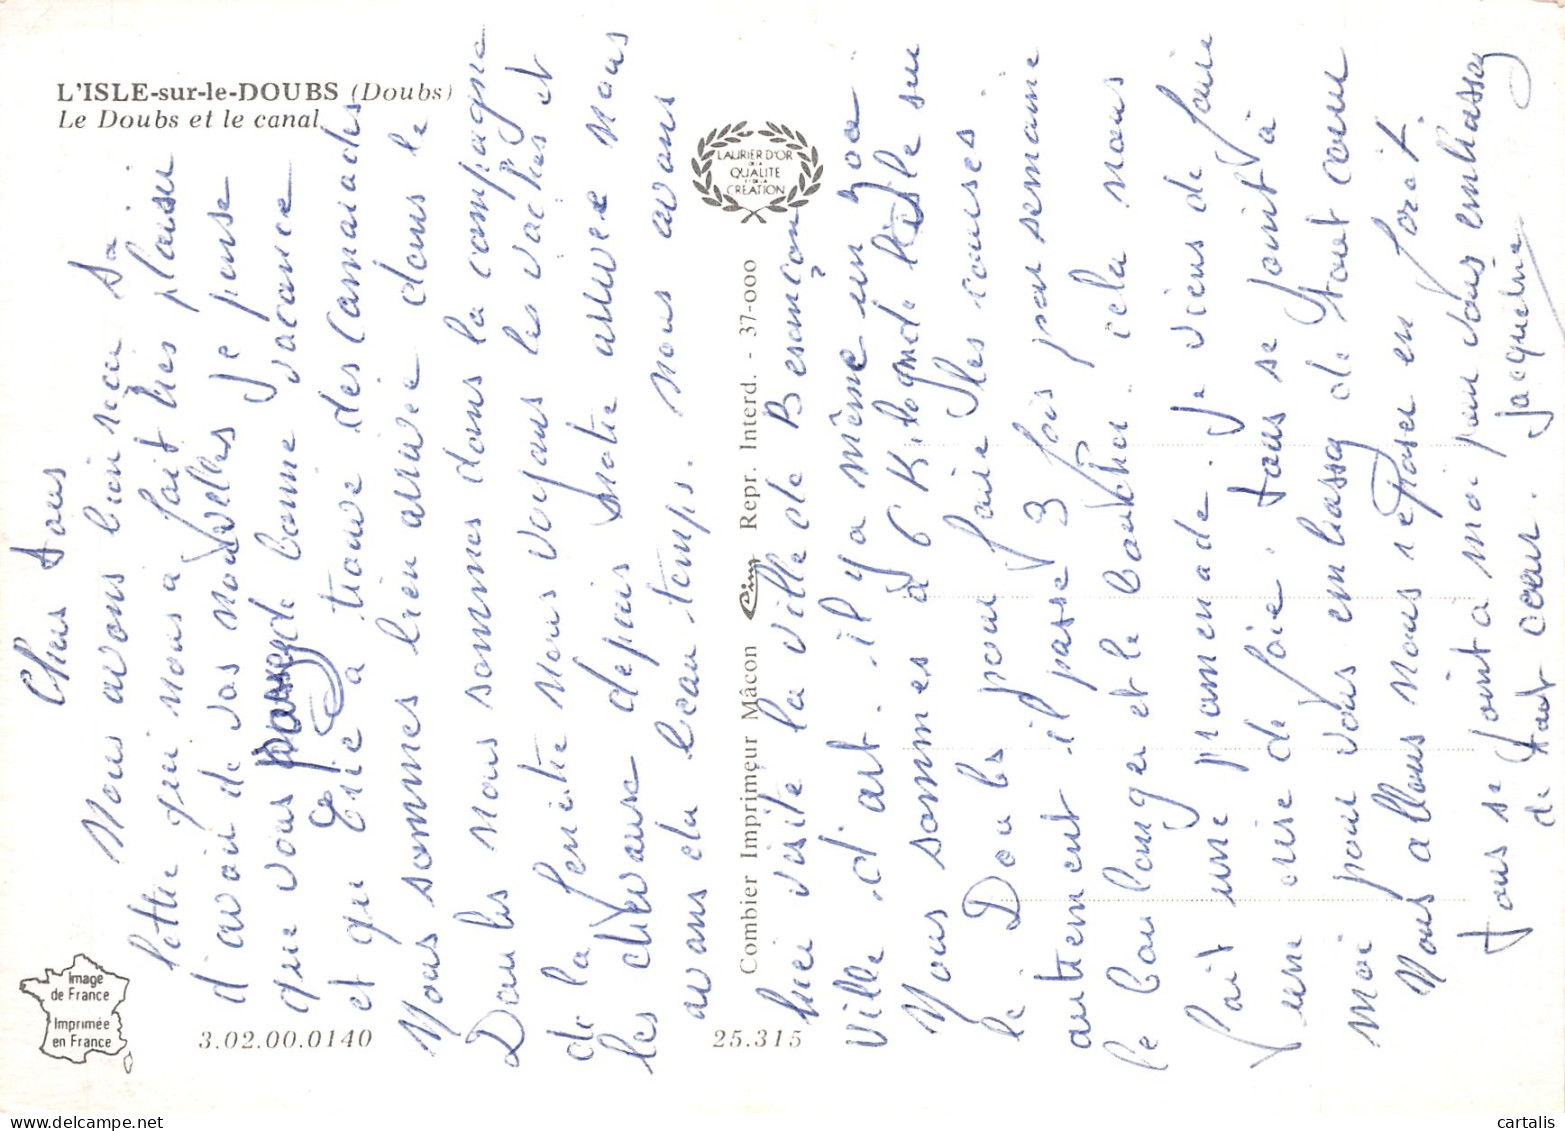 L'ISLE-sur-le-DOUBS (Doubs)
Le Doubs et le canal
LAURIER D'OR
DE LA
QUALITÉ
ET DE LA
CRÉATION
Combier Imprimeur Mâcon Cim Repr. Interd. - 37-000
Image
de France
Imprimée
en France
3.02.00.0140
25.315
Chers tous
Nous avons bien reçu ta
lettre qui nous a fait très plaisir
d'avoir de vos nouvelles je pense
que vous passez de bonne vacance
et que Eric a trouvé des camarades
Nous sommes bien arrivé dans le
Doubs nous sommes dans la campagne
de la fenêtre nous voyons les vaches et
les chevaux depuis notre arrivée nous
avons du beau temps. nous avons
hier visité la ville de Besançon
ville d'art. il y a même un zoo
Nous sommes à 6 Kilo de l'isle sur
le Doubs pour faire les courses
autrement il passe 3 fois par semaine
le boulanger et le boucher. cela nous
fait une promenade. je viens de faire
une crise de foie. tous se joint à
moi pour vous embrasser de tout cœur
Nous allons nous reposer en forêt.
tous se joint à moi pour vous embrasser
de tout cœur. Jacqueline